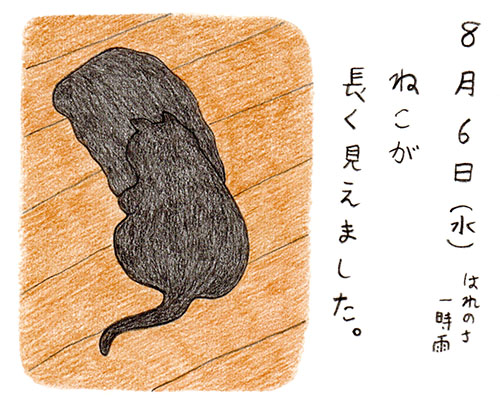 8月6日(水)
はれのち
一時雨
ねこが
長く見えました。